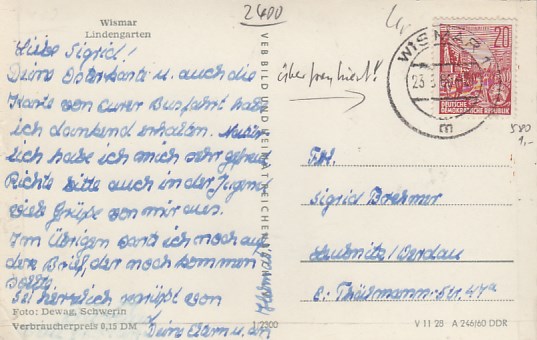 Wismar
Lindengarten
2400
Liebe Sigrid!
Deine Osterkarte u. auch die
Karte von eurer Busfahrt habe
ich dankend erhalten. Natür-
lich habe ich mich sehr gefreut
Richte bitte auch in der Jugend
viele Grüße von mir aus.
Im Übrigen warte ich noch auf
den Brief, der noch kommen
sollte.
Sei herzlich gegrüßt von
Foto: Dewag, Schwerin
Verbraucherpreis 0,15 DM
1/2300
überfrankiert!
WISMAR 1
20
DEUTSCHE
DEMOKRATISCHE REPUBLIK
580
1,-
Frl.
Sigrid Brehmer
E.-Thälmann-Str. 47a
V 11 28 A 246/60 DDR